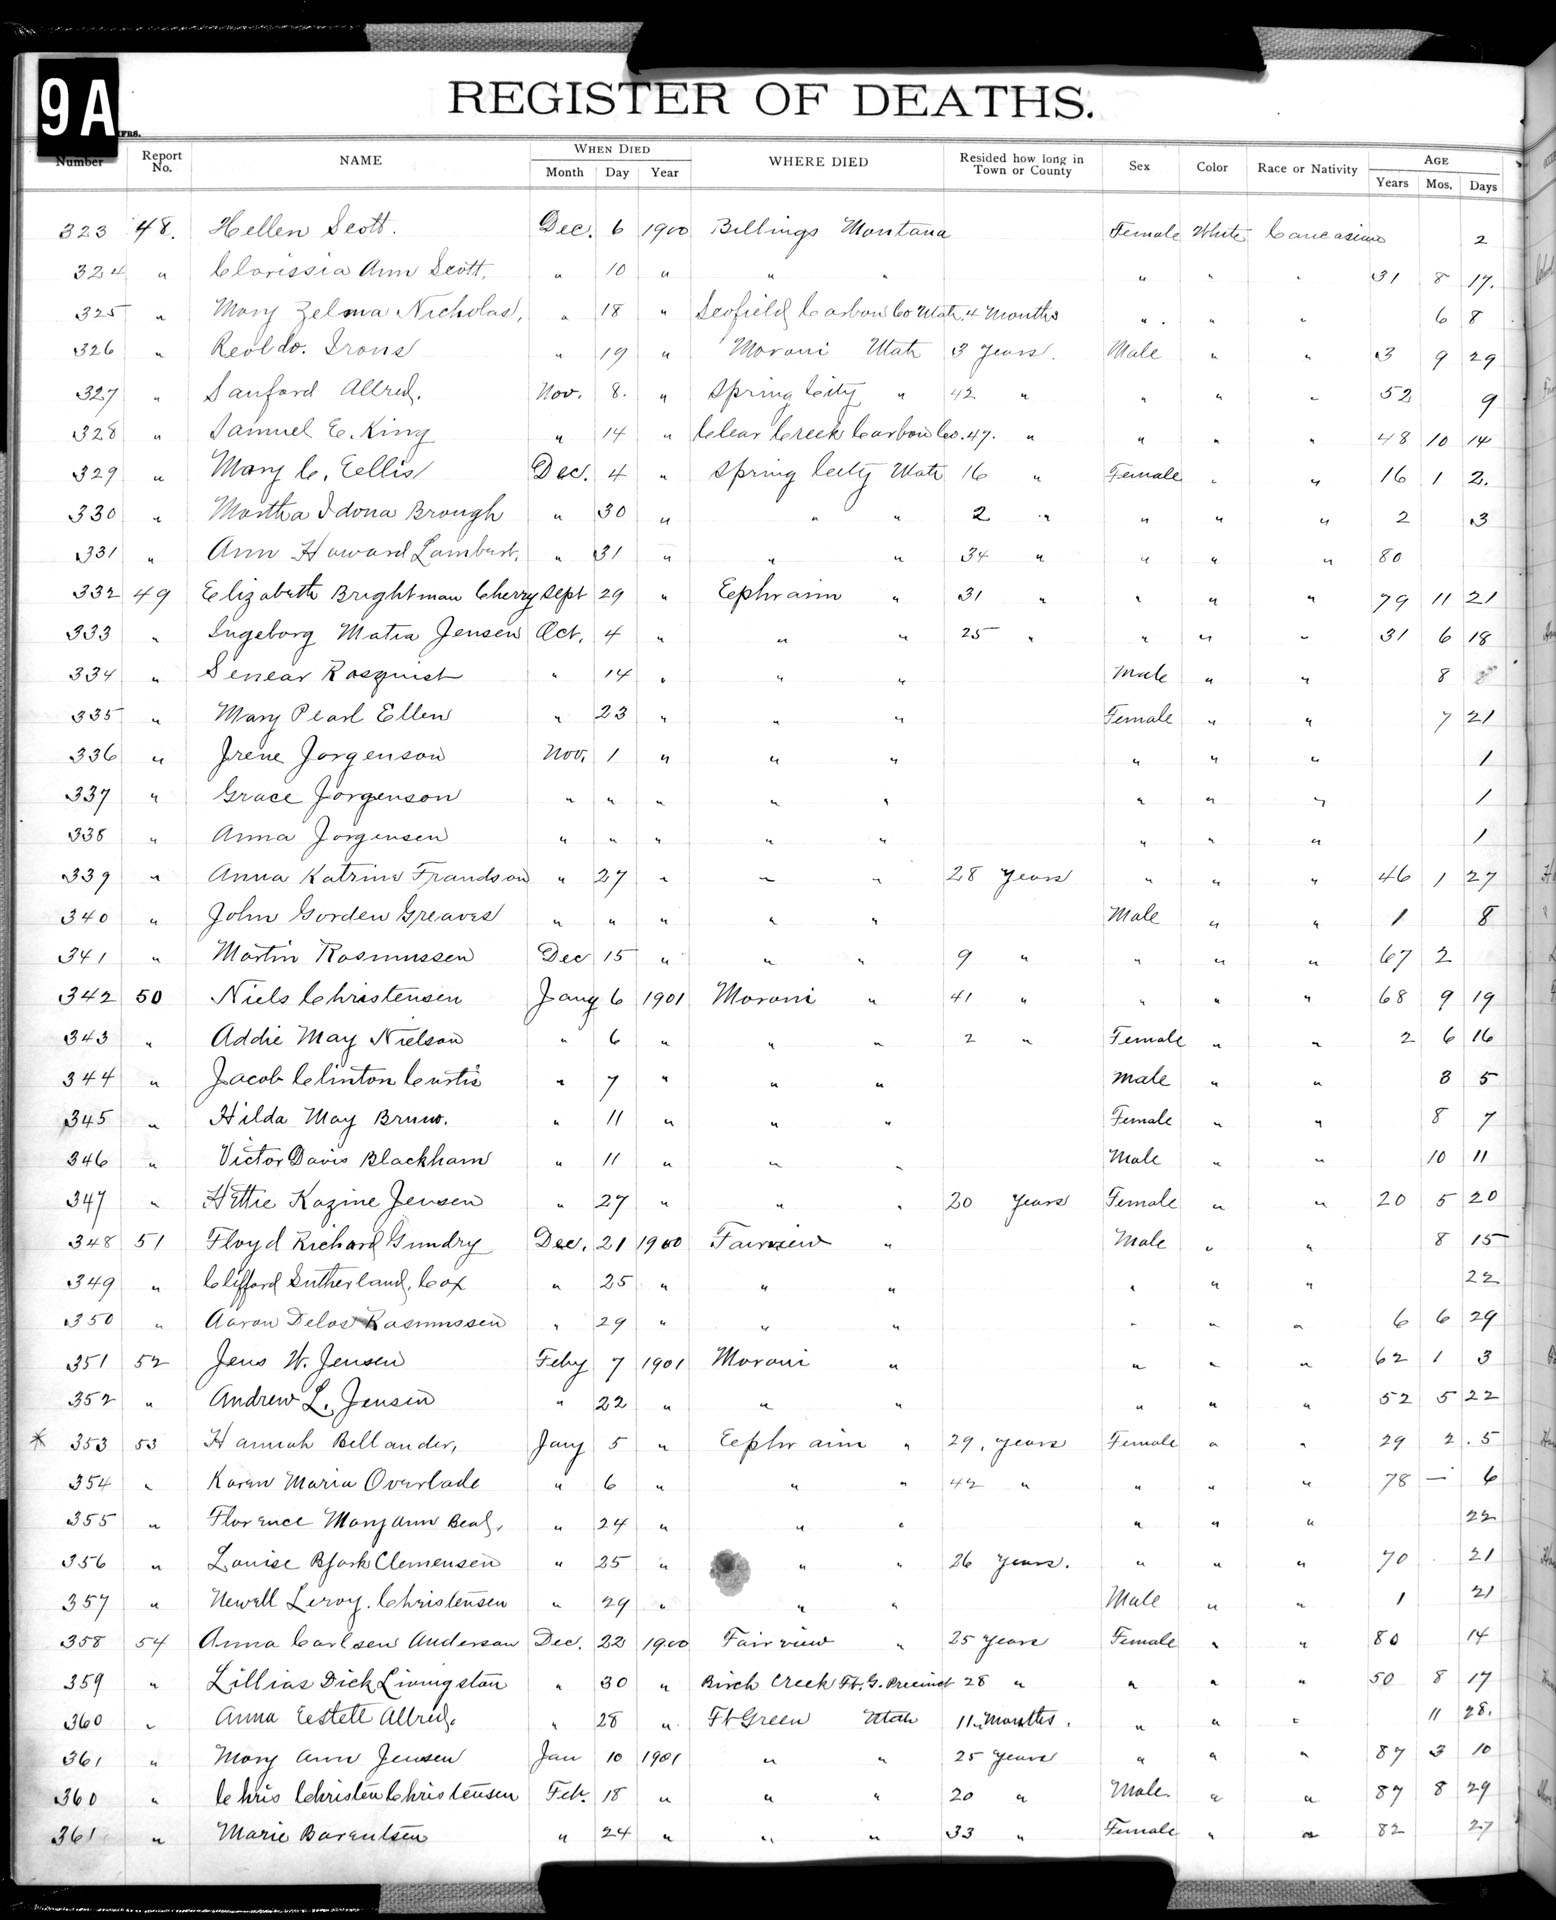 9A
REGISTER OF DEATHS.
Number Report No. NAME WHEN DIED Month Day Year WHERE DIED Resided how long in Town or County Sex Color Race or Nativity AGE Years Mos. Days
323 48. Hellen Scott. Dec. 6 1900 Billings Montana Female White Caucasian 2
324 " Clarissia Ann Scott, " 10 " " " " " " 31 8 17.
325 " Mary Zelma Nicholas, " 18 " Scofield Carbon Co Utah, 4 Months " " " 6 8
326 " Reoldo. Irons " 19 " Moroni Utah 3 Years. Male " " 3 9 29
327 " Sanford Allred. Nov. 8. " Spring City " 42 " " " " 52 9
328 " Samuel E. King " 14 " Clear Creek Carbon Co. 47. " " " " 48 10 14
329 " Mary C. Eellis Dec. 4 " Spring City Utah 16 " Female " " 16 1 2.
330 " Martha Idona Brough " 30 " " " 2 " " " " 2 3
331 " Ann Howard Lambert, " 31 " " " 34 " " " " 80
332 49 Elizabeth Brightman Cherry Sept 29 " Ephraim " 31 " " " " 79 11 21
333 " Ingeborg Matia Jensen Oct. 4 " " " 25 " " " " 31 6 18
334 " Senear Rosquist " 14 " " " Male " " 8
335 " Mary Pearl Ellen " 23 " " " Female " " 7 21
336 " Irene Jorgenson Nov. 1 " " " " " " 1
337 " Grace Jorgenson " " " " " " " " 1
338 " Anna Jorgensen " " " " " " " " 1
339 " Anna Katrine Frandson " 27 " " " 28 years " " " 46 1 27
340 " John Gorden Greaves " " " " " Male " " 1 8
341 " Martin Rasmussen Dec 15 " " " 9 " " " " 67 2
342 50 Niels Christensen Jany 6 1901 Moroni " 41 " " " " 68 9 19
343 " Addie May Nielson " 6 " " " 2 " Female " " 2 6 16
344 " Jacob Clinton Curtis " 7 " " " Male " " 8 5
345 " Hilda May Bruno. " 11 " " " Female " " 8 7
346 " Victor Davis Blackham " 11 " " " Male " " 10 11
347 " Hettie Kazine Jensen " 27 " " " 20 years Female " " 20 5 20
348 51 Floyd Richard Gundry Dec. 21 1900 Fairview " Male " " 8 15
349 " Clifford Sutherland, Cox " 25 " " " " " " 22
350 " Aaron Delos Rasmussen " 29 " " " " " " 6 6 29
351 52 Jens W. Jensen Feby 7 1901 Moroni " " " " 62 1 3
352 " Andrew L. Jensen " 22 " " " " " " 52 5 22
* 353 53 Hannah Bellander, Jany 5 " Eephraim " 29, years Female " " 29 2. 5
354 " Karen Maria Overlade " 6 " " " 42 " " " " 78 — 6
355 " Florence Mary ann Beal, " 24 " " " " " " 22
356 " Louise Bjork Clemensen " 25 " " " 26 years. " " " 70 21
357 " Newell Leroy. Christensen " 29 " " " Male " " 1 21
358 54 Anna Carlsen Anderson Dec. 22 1900 Fairview " 25 years Female " " 80 14
359 " Lillias Dick Livingston " 30 " Birch Creek Ft. G. Precinct 28 " " " " 50 8 17
360 " Anna Eestell Allred. " 28 " Ft Green Utah 11. Months. " " " 11 28.
361 " Mary Ann Jensen Jan 10 1901 " " 25 years " " " 87 3 10
360 " Chris Christen Christensen Feb. 18 " " " 20 " Male. " " 87 8 29
361 " Marie Barentsen " 24 " " " 33 " Female " " 82 27